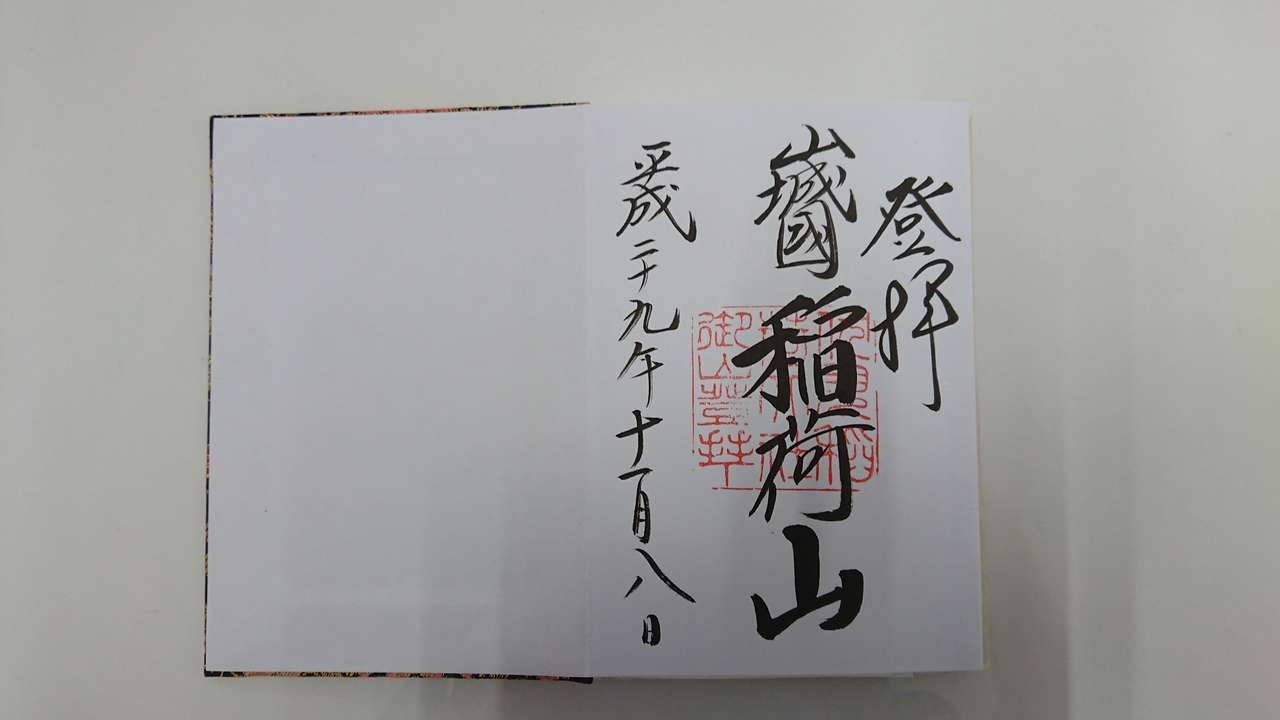 登拝
山城國稲荷山
平成二十九年十一月八日
御山登拝